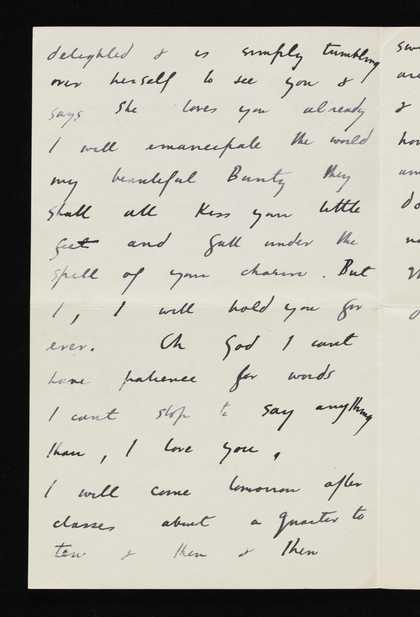 delighted & is simply tumbling
over herself to see you &
says she loves you already
I will emancipate the world
my beautiful Bunty they
shall all kiss your little
feet and fall under the
spell of your charm. But
I, I will hold you for
ever. Oh God I cant
have patience for words
I cant stop to say anything
than, I love you,
I will come tomorrow after
classes about a quarter to
ten & then & then